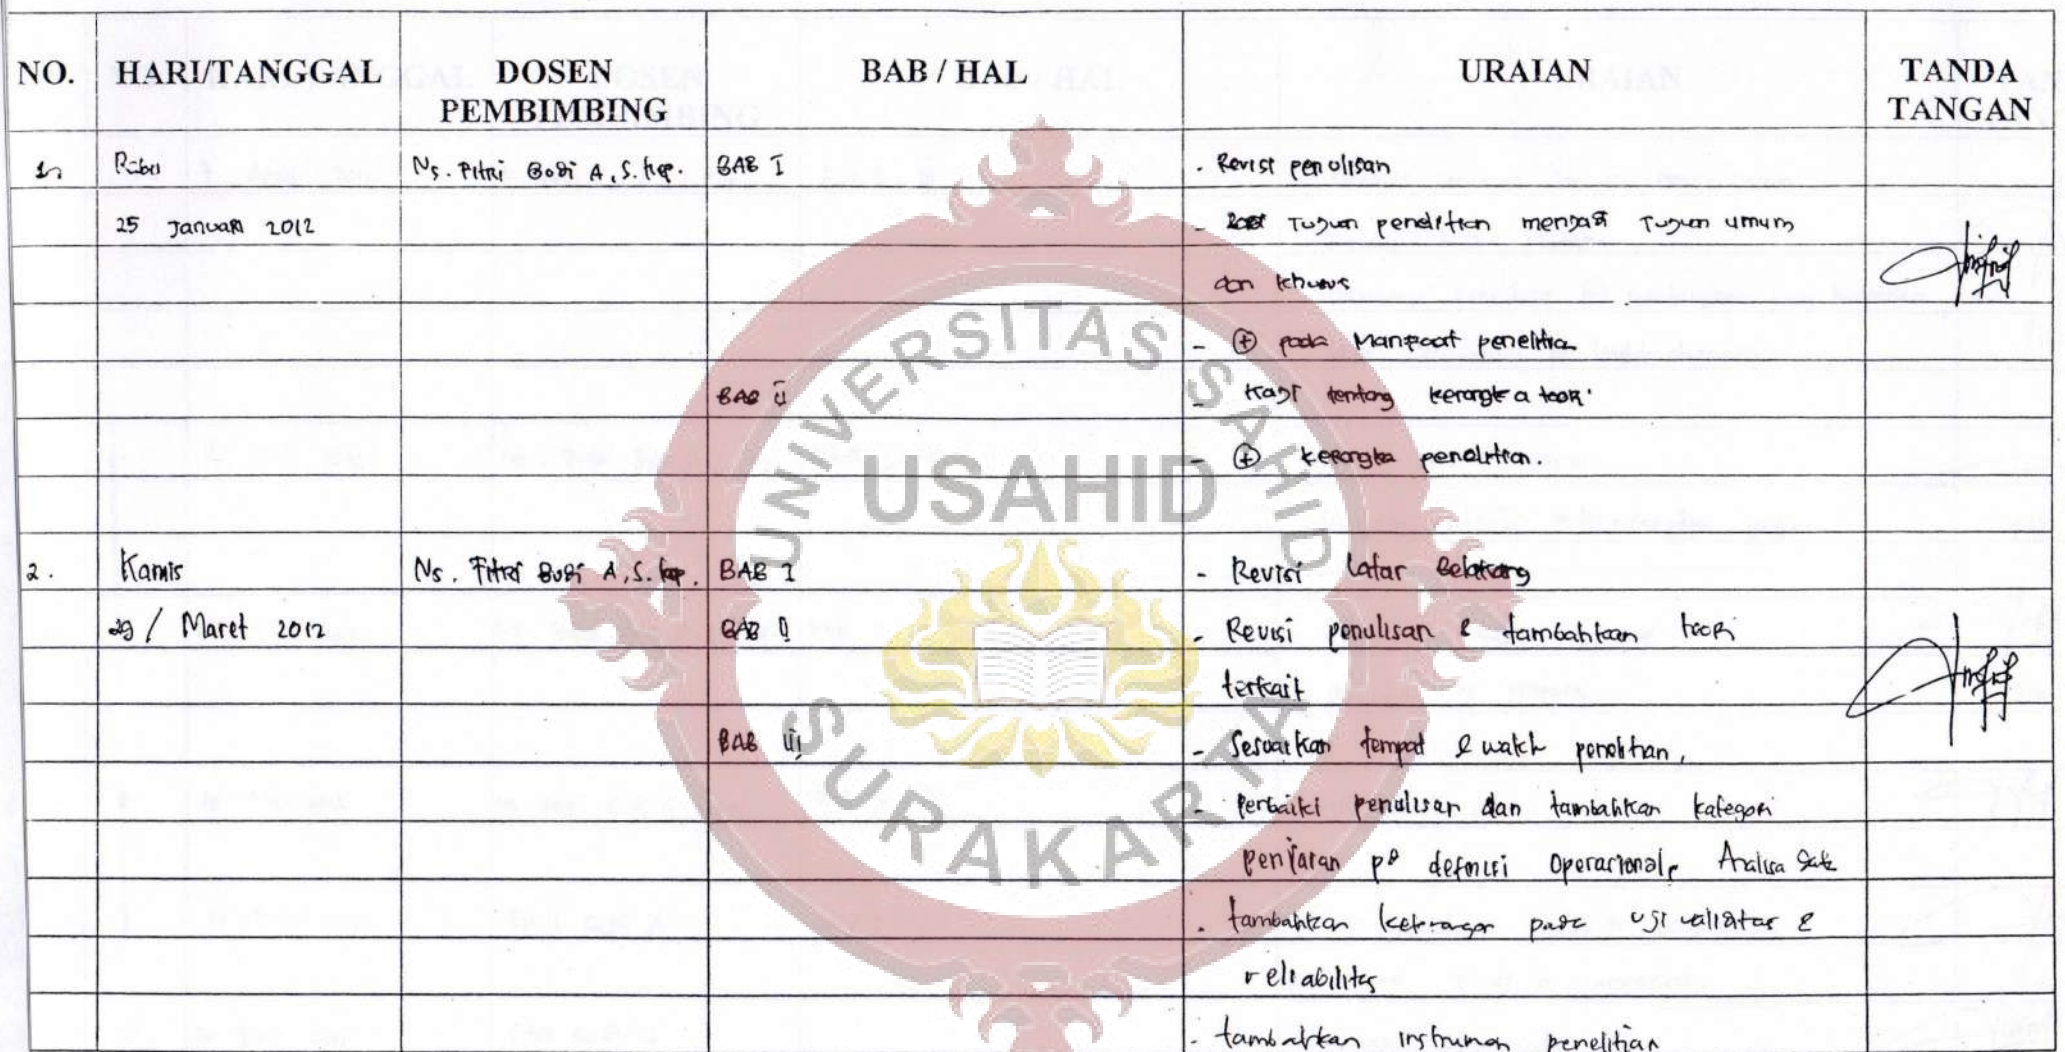 NO. HARI/TANGGAL DOSEN PEMBIMBING BAB / HAL URAIAN TANDA TANGAN
1. Rabu Ns. Fitri Budi A, S.Kep. BAB I - Revisi penulisan
25 Januari 2012 - Tujuan penelitian menjadi Tujuan umum
dan khusus
- + pada Manfaat penelitian
BAB II - Kaji tentang kerangka teori
- + kerangka penelitian.
2. Kamis Ns. Fitri Budi A, S.Kep. BAB I - Revisi latar Belakang
29 / Maret 2012 BAB II - Revisi penulisan & tambahkan teori
terkait
BAB III - Sesuaikan tempat & waktu penelitian,
- Perbaiki penulisan dan tambahkan kategori
pd definisi Operasional, Analisa data
- tambahkan keterangan pada uji validitas &
reliabilitas
- tambahkan instrumen penelitian
UNIVERSITAS SAHID
USAHID
SURAKARTA